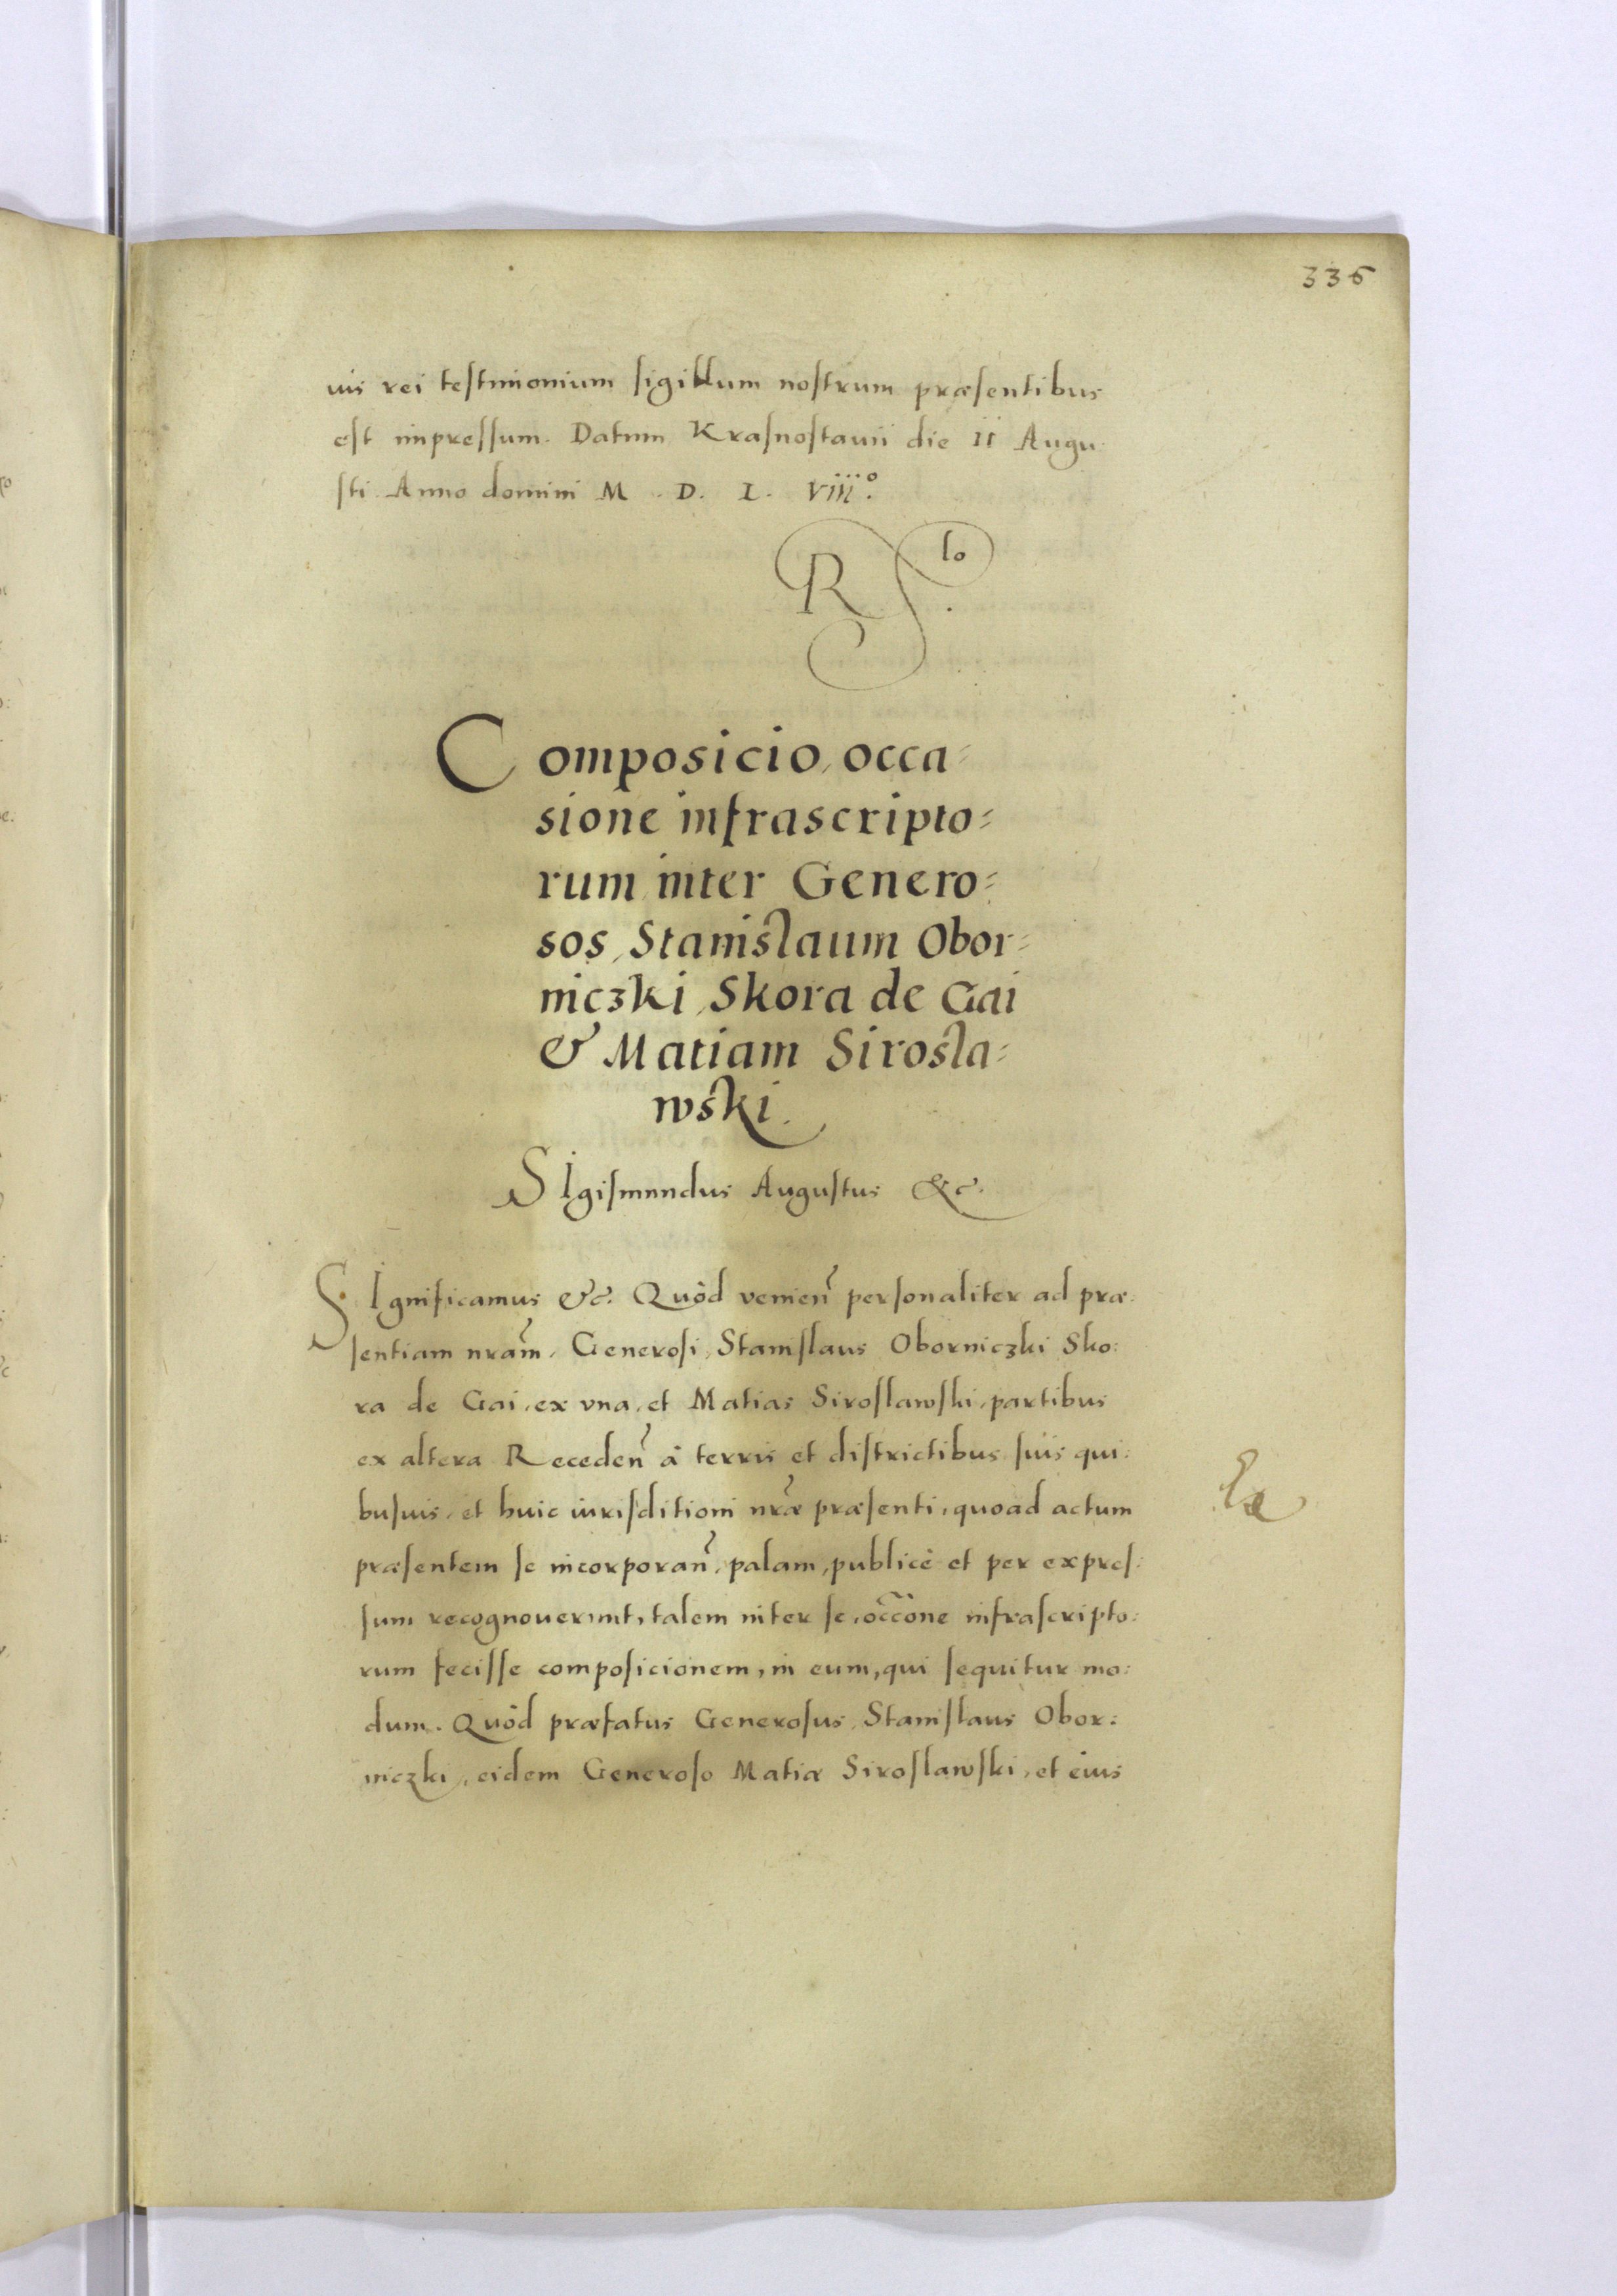 336
ius rei testimonium sigillum nostrum præsentibus
est impressum. Datum Krasnostauii die II Augu
sti Anno domini M. D. L. viii°.
R S lo.
Composicio, occa=
sione infrascripto=
rum inter Genero=
sos, Stanislaum Obor=
niczki, Skora de Gai
& Matiam Sirosla=
wski.
SIgismundus Augustus &c.
SIgnificamus &c. Quòd venien̄ personaliter ad præ:
sentiam nram̄, Generosi, Stanislaus Oborniczki Sko:
ra de Gai, ex vna, et Matias Siroslawski, partibus
ex altera Receden̄ à terris et districtibus suis qui:
busuis, et huic iurisditioni nr̄æ præsenti, quoad actum
præsentem se incorporan̄, palam, publicè et per expres:
sum recognouerunt, talem inter se, occ̄one infrascripto:
rum fecisse composicionem, in eum, qui sequitur mo:
dum. Quòd præfatus Generosus, Stanislaus Obor:
niczki, eidem Generoso Matiæ Siroslawski, et eius